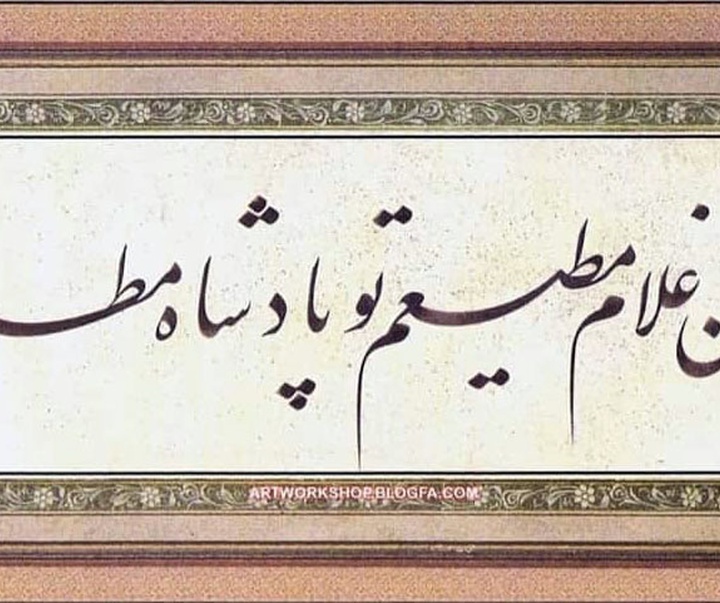 ن غلام مطیعم تو پادشاه مطـ
ARTWORKSHOP.BLOGFA.COM